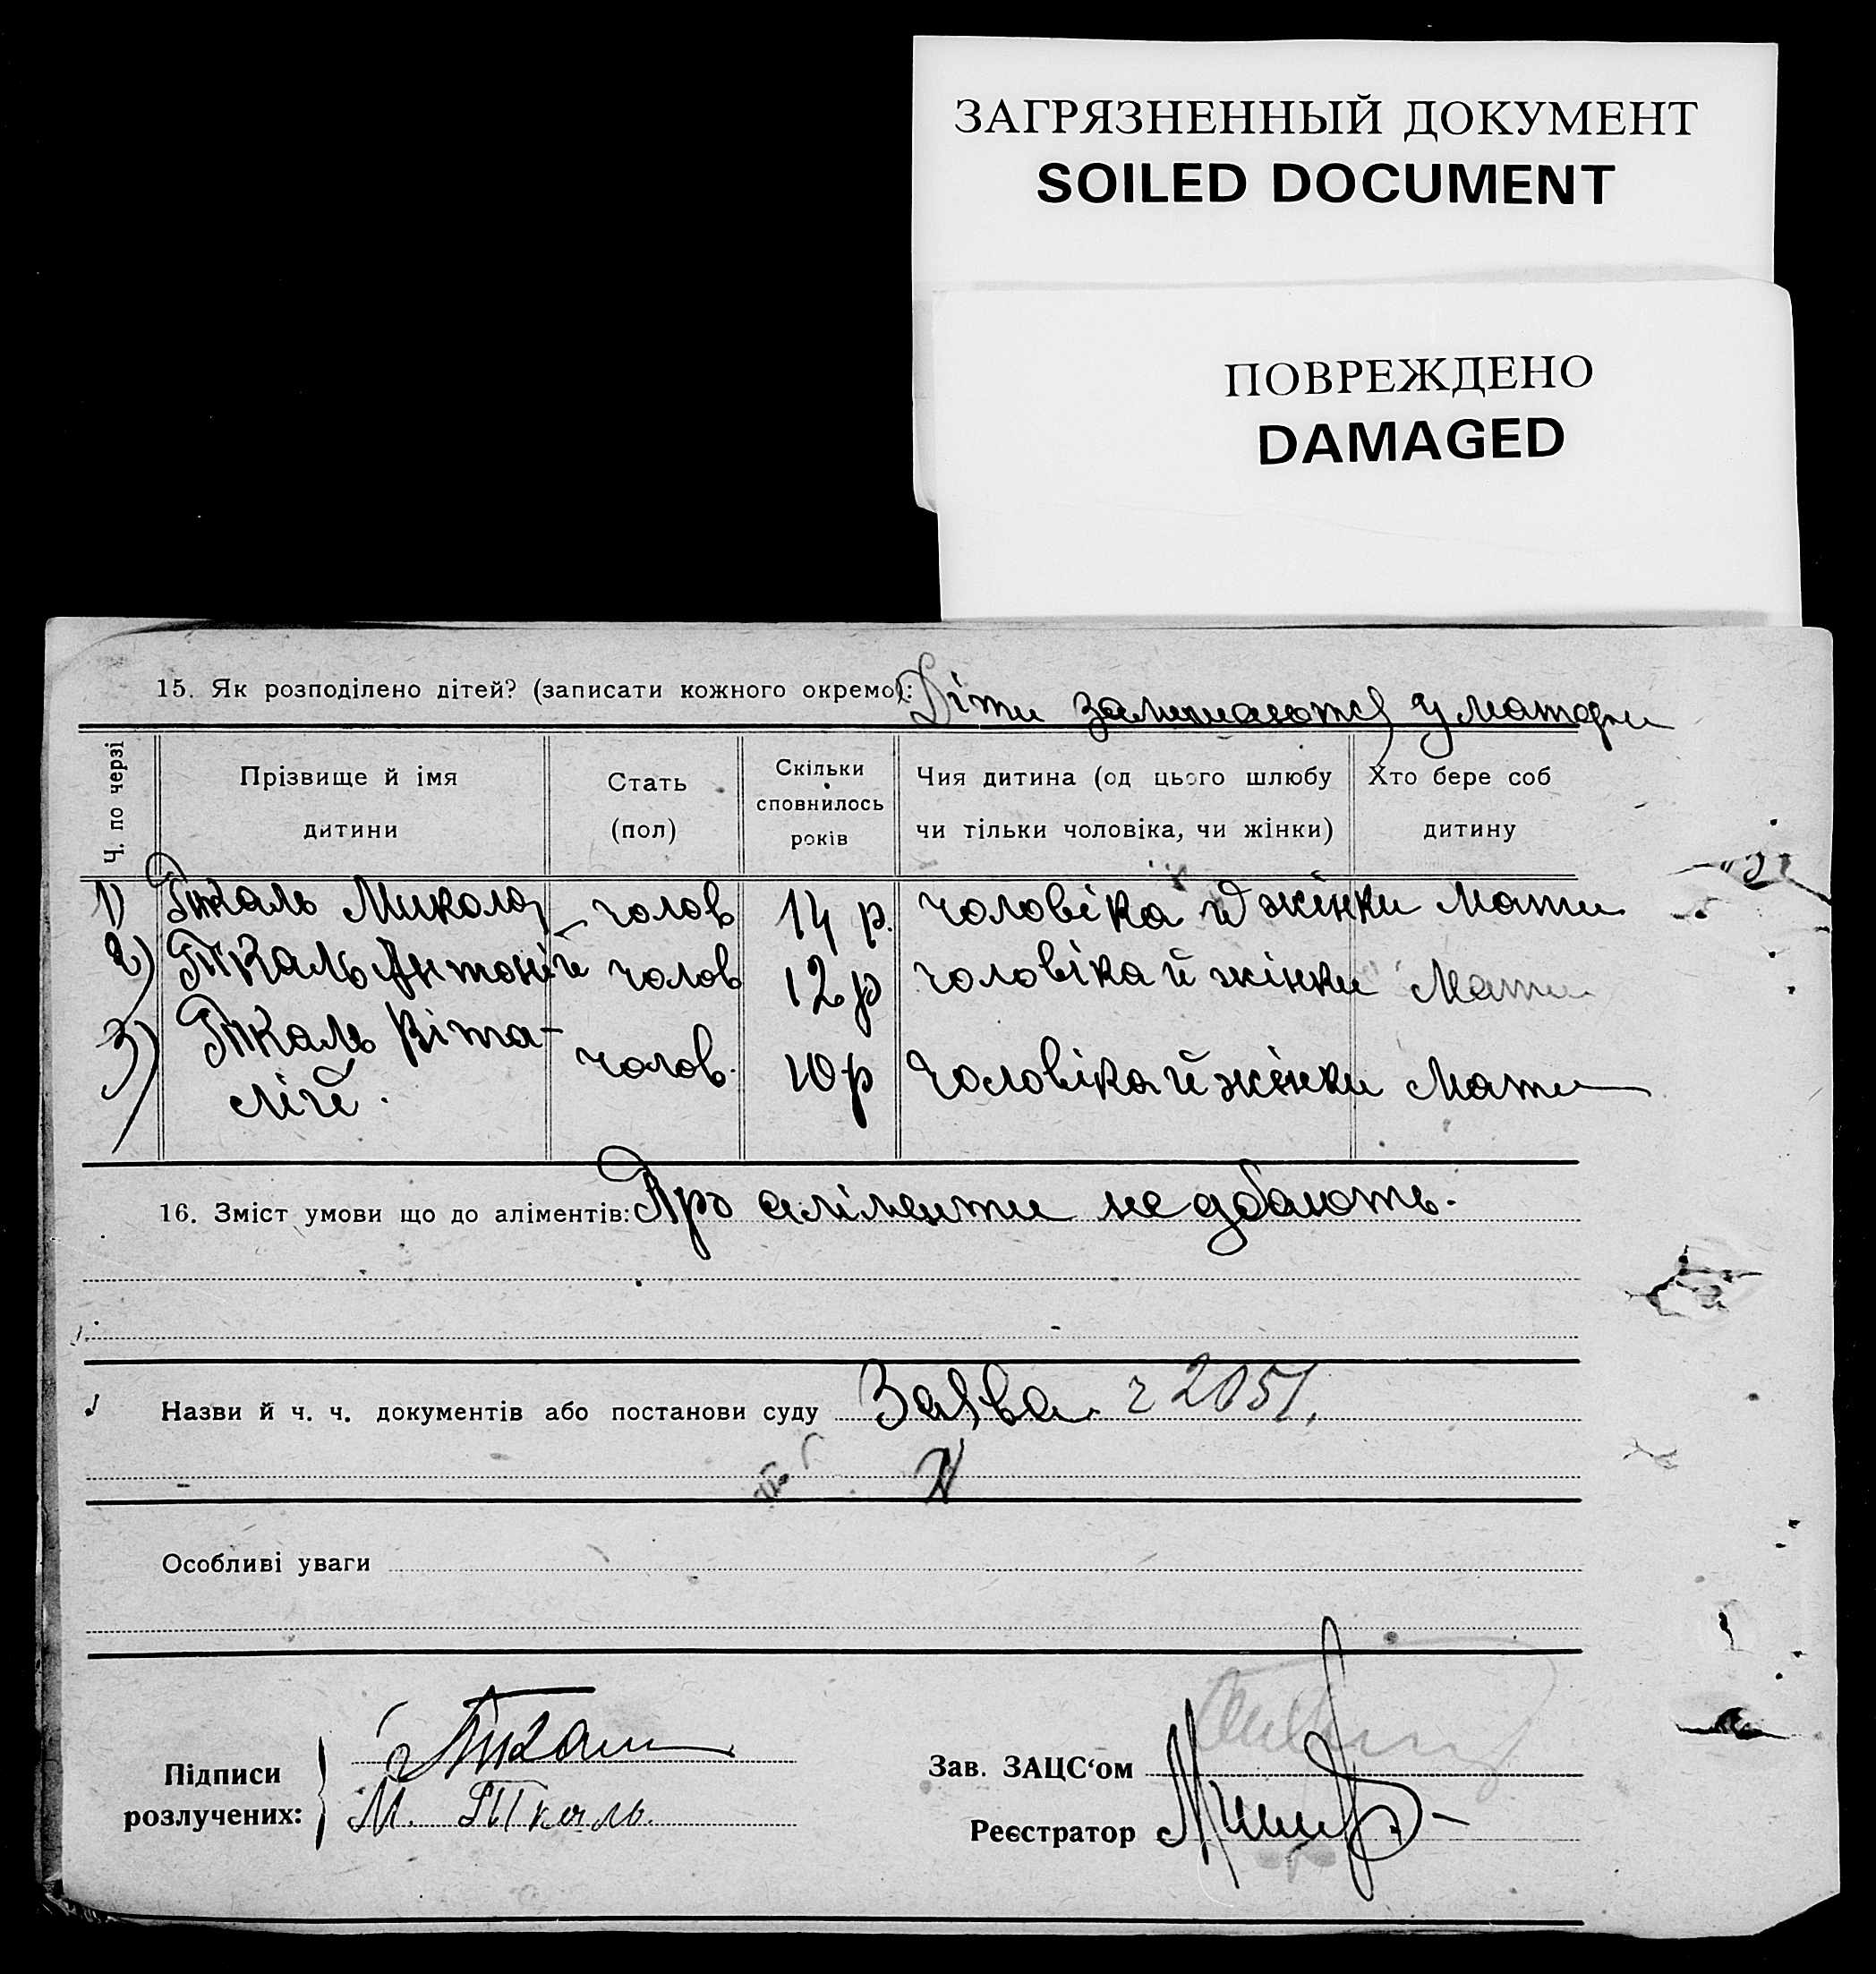 ЗАГРЯЗНЕННЫЙ ДОКУМЕНТ
SOILED DOCUMENT
ПОВРЕЖДЕНО
DAMAGED
15. Як розподілено дітей? (записати кожного окремо): Діти залишаються у матери
Ч. по черзі
Прізвище й імя дитини
Стать (пол)
Скільки сповнилось років
Чия дитина (од цього шлюбу чи тільки чоловіка, чи жінки)
Хто бере соб дитину
1) Ткаль Микола чолов 14 р. чоловіка й жінки Мати
2) Ткаль Антоній чолов 12 р чоловіка й жінки Мати
3) Ткаль Віта-
лій. чолов. 10 р Чоловіка й жінки Мати
16. Зміст умови що до аліментів: Про аліменти не дбають.
Назви й ч. ч. документів або постанови суду Заява ч 2051.
Особливі уваги
Підписи
розлучених:
М. Ткаль.
Зав. ЗАЦС‘ом
Реєстратор